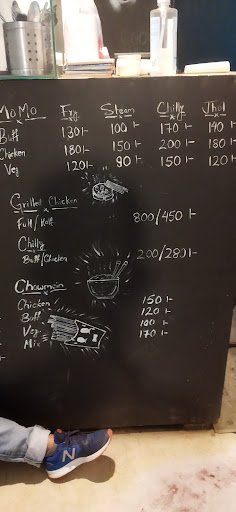 MoMo Fry Steam Chilly Jhol
Buff 130/- 100 /- 170 /- 140 /-
Chicken 180/- 150 /- 200 /- 180 /-
Veg 120/- 90 /- 150 /- 120 /-
Grilled Chicken
Full/Half 800/450 /-
Chilly
Buff/Chicken 200/280/-
Chowmein
Chicken 150 /-
Buff 120 /-
Veg 100 /-
Mix 170 /-
N